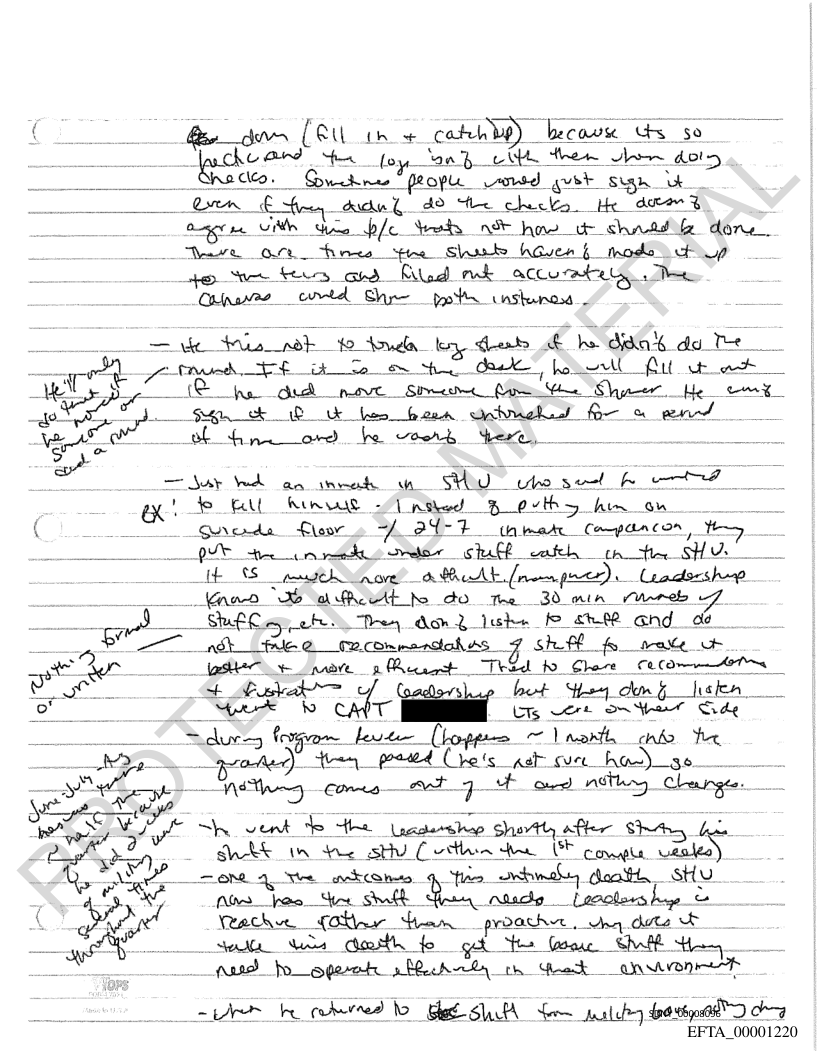 down (fill in + catch up) because its so
hectic and the log isn't with them when doing
checks. Sometimes people would just sign it
even if they didn't do the checks. He doesn't
agree with this b/c thats not how it should be done.
There are times the sheets haven't made it up
to the tiers and filled out accurately. The
cameras could show both instances.
- He tries not to touch log sheets if he didn't do the
round. If it is on the desk, he will fill it out
if he did move someone from the shower. He
sign it if it has been untouched for a period
of time and he wasn't there.
He'll only
do that if
he moved
someone or
did a round
- Just had an inmate in SHU who said he wanted
ex! to kill himself - Instead of putting him on
suicide floor w/ 24-7 inmate companion, they
put the inmate under staff watch in the SHU.
It is much more difficult (manpower). Leadership
knows its difficult to do the 30 min rounds w/
staffing, etc. They don't listen to staff and do
not take recommendations of staff to make it
better + more efficient Tried to share recommendations
+ frustrations w/ leadership but they don't listen
went to CAPT LTs were on their side
Nothing formal
or written
- during Program Review (happens ~ 1 month into the
quarter) they passed (he's not sure how) so
nothing comes out of it and nothing changes.
June-July-Aug
he was there
~ half the
quarter because
he did 2 weeks
of military leave
several times
throughout the
quarter
- he went to the leadership shortly after starting his
shift in the SHU (within the 1st couple weeks)
- one of the outcomes of this untimely death SHU
now has the stuff they needs Leadership is
reactive rather than proactive. why does it
take this death to get the basic stuff they
need to operate effectively in that environment.
- when he returned to shift from military leave nothing
TOPS
EFTA_00001220
PROTECTED MATERIAL